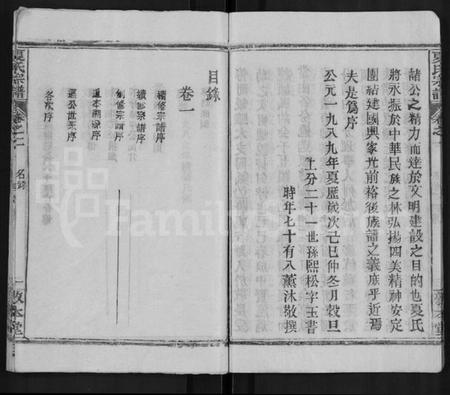 夏氏宗譜
卷之一
諸公之精力而達於文明建設之目的也夏氏
將永振於中華民族之林弘揚四美精神安定
團結建國興家光前裕後族譜之義庶乎近焉
夫是爲序
公元一九八九年夏歷歲次己巳仲冬月穀旦
上分二十一世孫熙松字玉書
時年七十有八薰沐敬撰
目錄
卷一
續修宗譜序
續修宗譜序
創修宗譜序
夏氏宗譜
卷之一
名錄
一
敦本堂
FamilyS